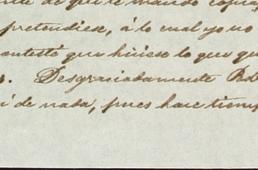 de que le mando copia
pretendiese, á lo cual yo no
contestó que hiciese lo que qu
Desgraciadamente Rd
i de nada, pues hace tiemp